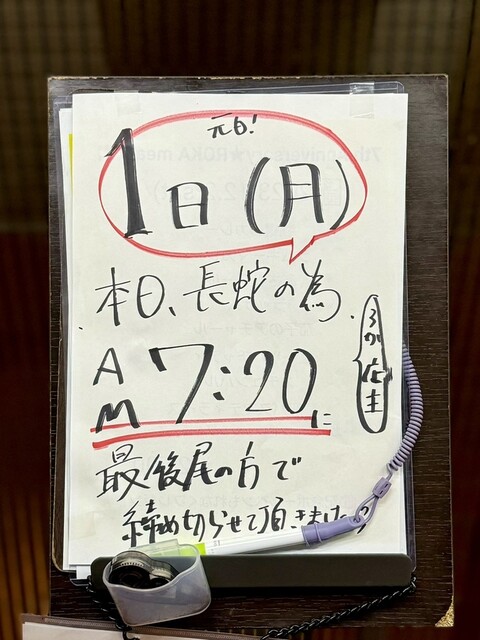 元日!
1日(月)
本日、長蛇の為、
AM 7:20に
ろか店主
最後尾の方で
締め切らせて頂きました